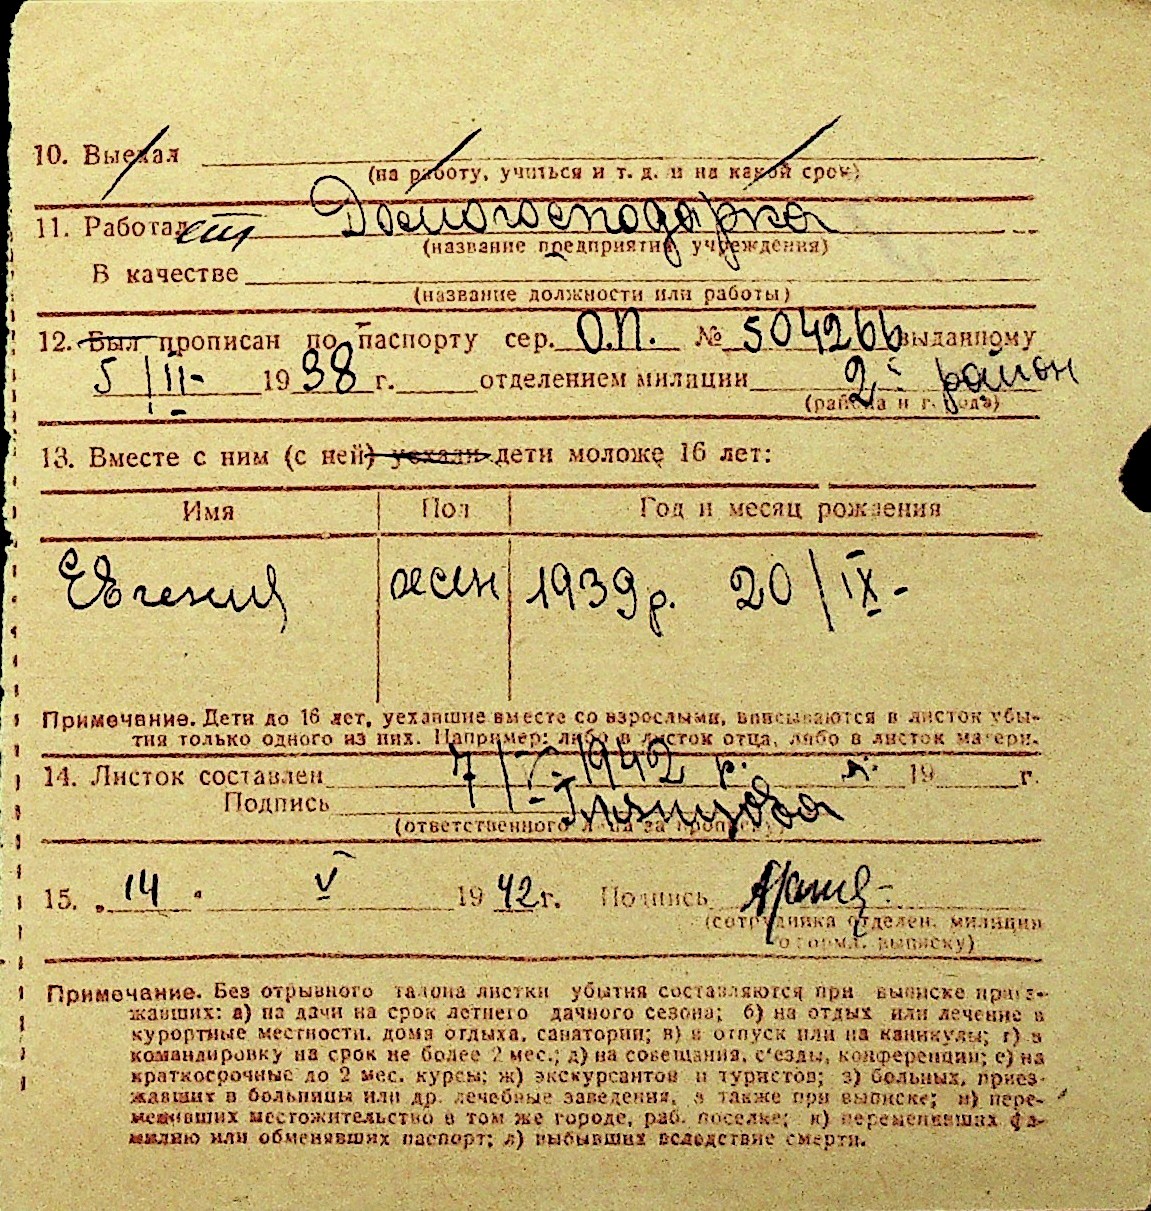 10. Выехал
(на работу, учиться и т. д. и на какой срок)
11. Работает Домогосподарка
(название предприятия, учреждения)
В качестве
(название должности или работы)
12. Был прописан по паспорту сер. О.П. № 504266 выданному
5/II- 1938 г. отделением милиции 2й район
(района и города)
13. Вместе с ним (с ней) уехали дети моложе 16 лет:
Имя Пол Год и месяц рождения
Евгения жен 1939 р. 20/IX-
Примечание. Дети до 16 лет, уехавшие вместе со взрослыми, вписываются в листок убы-
тия только одного из них. Например: либо в листок отца, либо в листок матери.
14. Листок составлен 7/V- 1942 р. 19 г.
Подпись
(ответственного лица за прописку)
15. „14" V 1942 г. Подпись
(сотрудника отделен. милиции
оформл. выписку)
Примечание. Без отрывного талона листки убытия составляются при выписке приез-
жавших: а) на дачи на срок летнего дачного сезона; б) на отдых или лечение в
курортные местности, дома отдыха, санатории; в) в отпуск или на каникулы; г) в
командировку на срок не более 2 мес.; д) на совещания, с'езды, конференции; е) на
краткосрочные до 2 мес. курсы; ж) экскурсантов и туристов; з) больных, приез-
жавших в больницы или др. лечебные заведения, а также при выписке; и) пере-
менивших местожительство в том же городе, раб. поселке; к) переменивших фа-
милию или обменявших паспорт; л) выбывших вследствие смерти.